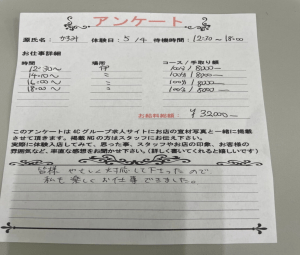 アンケート
源氏名・ 体験日・ 5 / 4 待機時間・ 12:30〜18:00
お仕事詳細
時間 場所 コース / 手取り額
12:30〜 100分 / 8000-
14:10〜 〃 100分 / 8000-
16:00〜 〃 100分 / 8000-
18:00〜 〃 100分 / 8000-
お給料総額 ¥32000-
このアンケートは4Cグループ求人サイトにお店の宣材写真と一緒に掲載
させて頂きます。掲載NGの方はスタッフにお伝え下さい。
実際に体験入店してみて、思った事、スタッフやお店の印象、お客様の
雰囲気など、率直な感想をお聞かせ下さい。(詳しく書いてくれると嬉しいです)
皆様 やさしく対応して下さったので
私も楽しくお仕事できました。